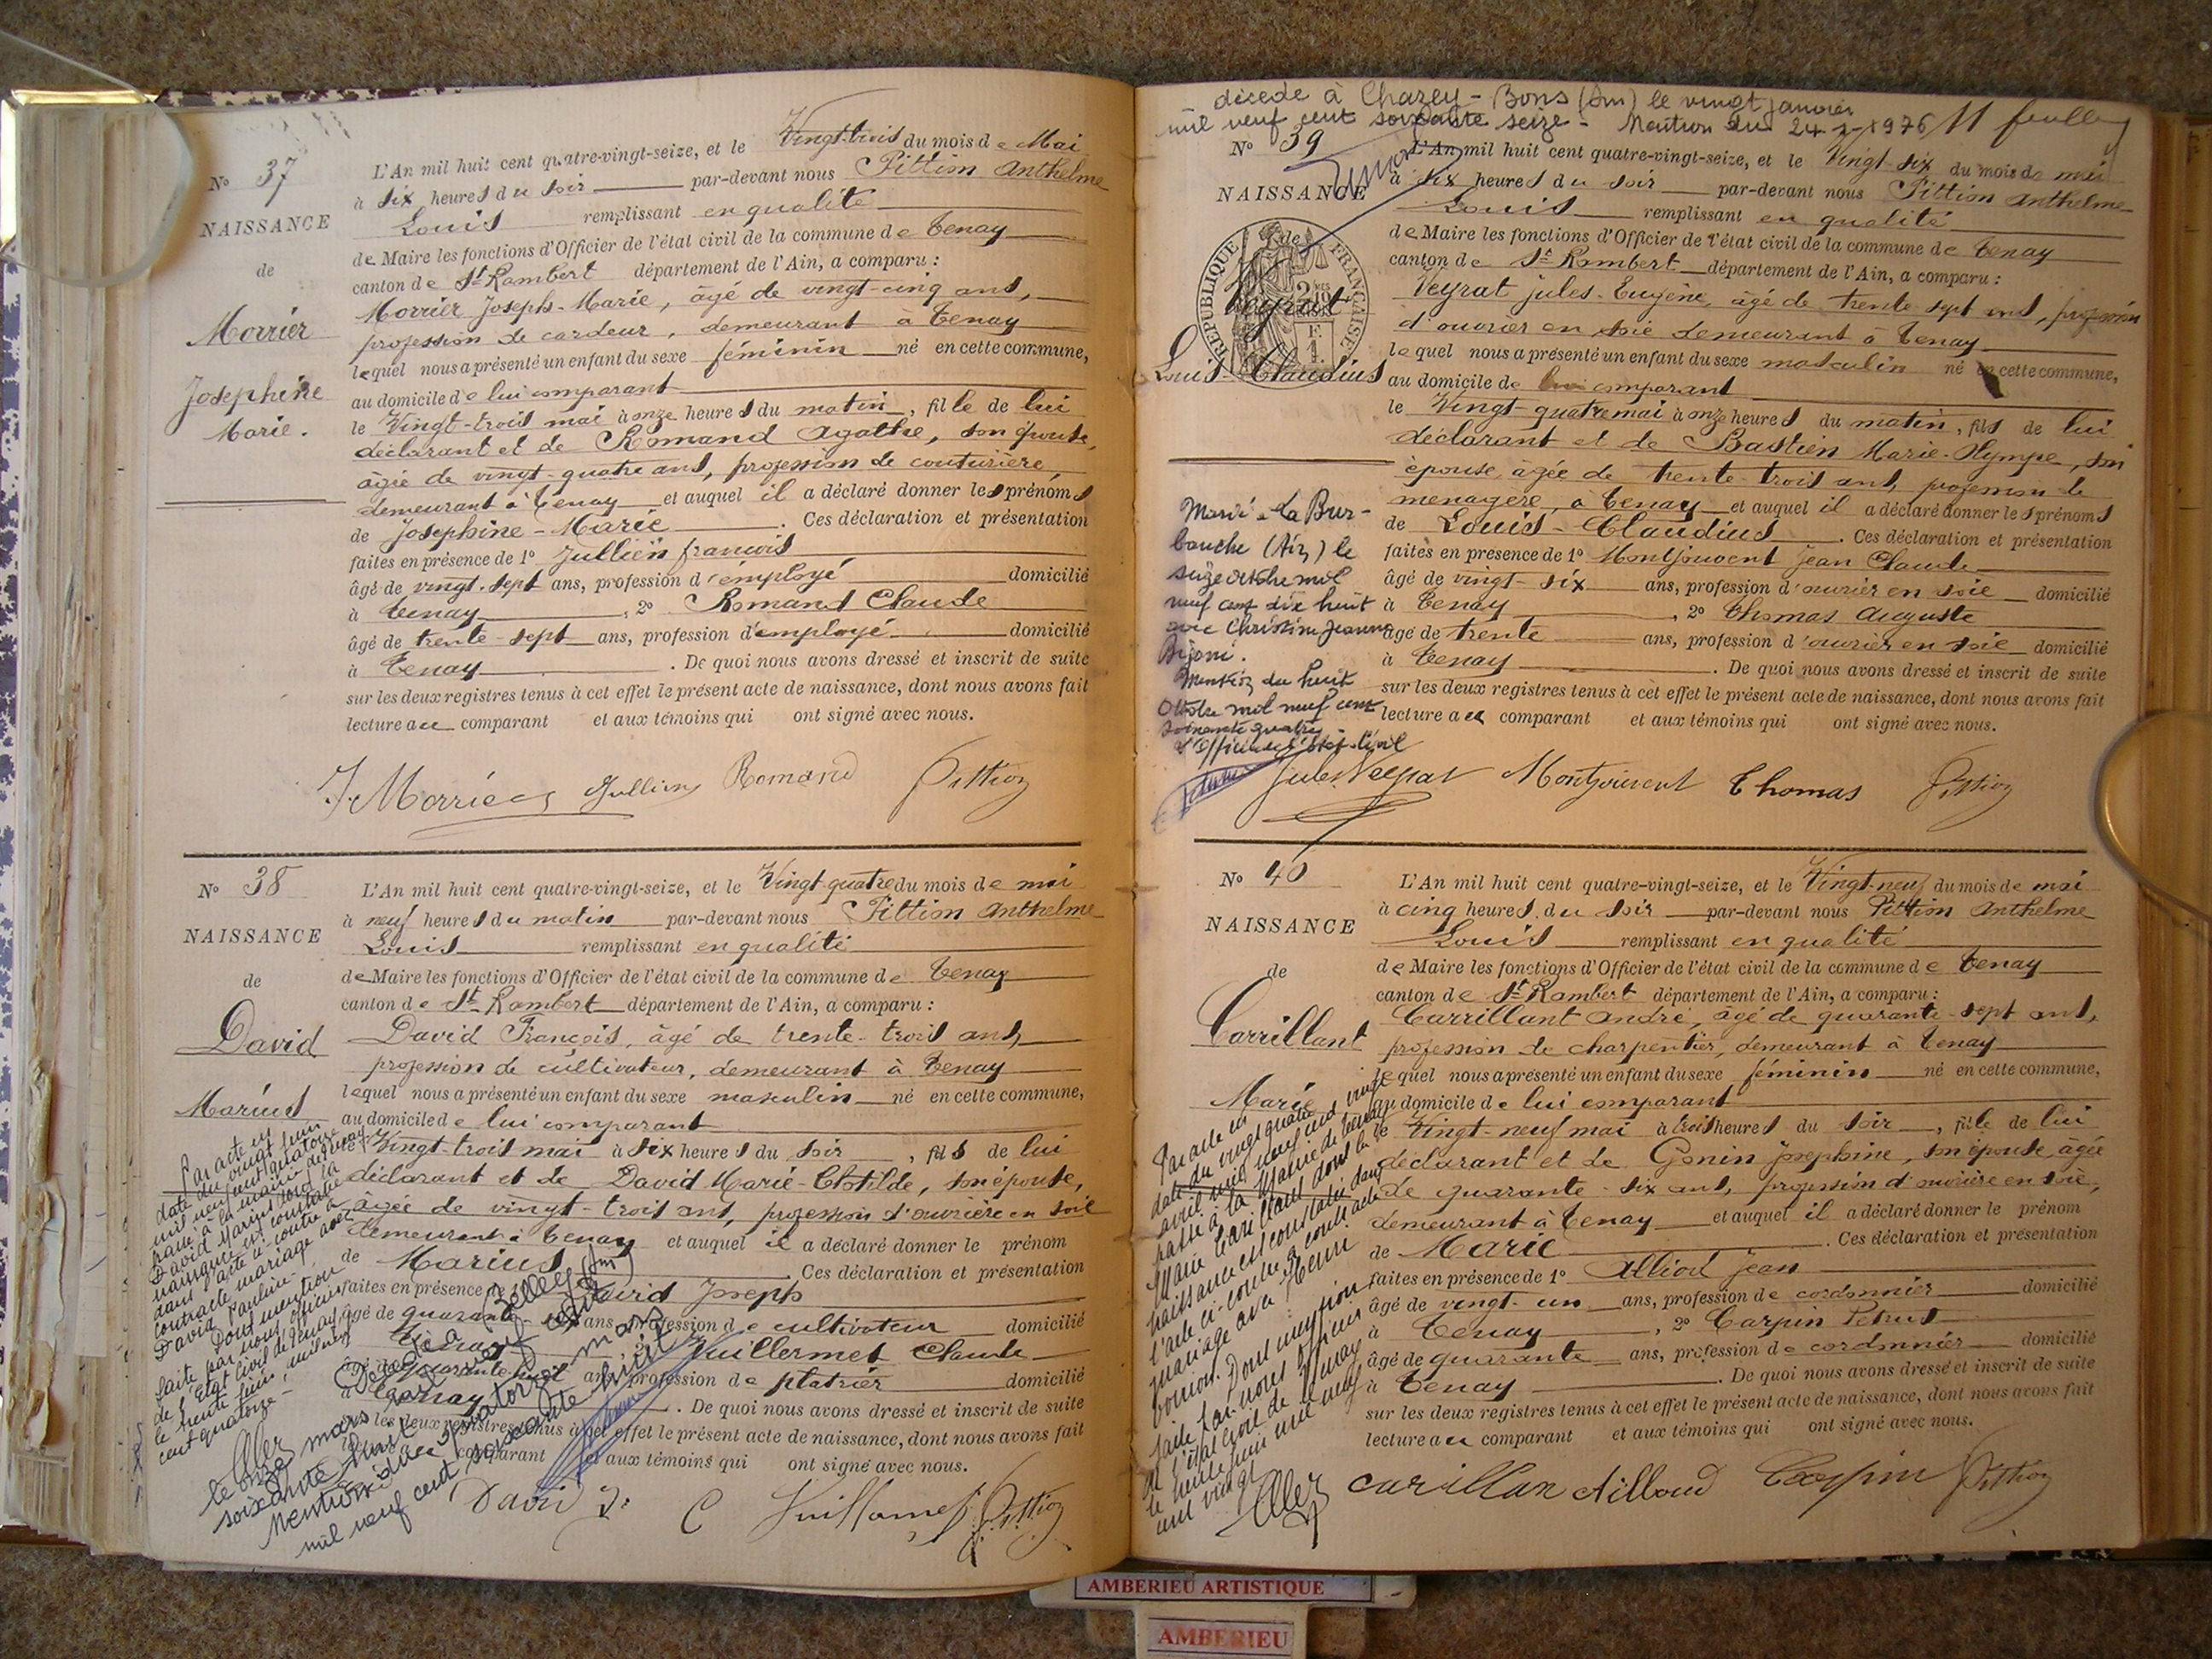 N° 37
NAISSANCE
de
Morrier
Josephine
Marie.
L'An mil huit cent quatre-vingt-seize, et le Vingt-trois du mois de Mai
à six heures du soir par-devant nous Pittion Anthelme
Louis remplissant en qualité
de Maire les fonctions d'Officier de l'état civil de la commune de Tenay
canton de St Rambert département de l'Ain, a comparu :
Morrier Joseph-Marie, âgé de vingt-cinq ans,
profession de cardeur, demeurant à Tenay
lequel nous a présenté un enfant du sexe féminin né en cette commune,
au domicile de lui comparant
le Vingt-trois mai à onze heures du matin, fille de lui
déclarant et de Romand Agathe, son épouse,
âgée de vingt-quatre ans, profession de couturière,
demeurant à Tenay et auquel il a déclaré donner les prénoms
de Josephine-Marie. Ces déclaration et présentation
faites en présence de 1° Jullien françois
âgé de vingt-sept ans, profession d'employé domicilié
à Tenay, 2° Romand Claude
âgé de trente-sept ans, profession d'employé domicilié
à Tenay. De quoi nous avons dressé et inscrit de suite
sur les deux registres tenus à cet effet le présent acte de naissance, dont nous avons fait
lecture au comparant et aux témoins qui ont signé avec nous.
J. Morrier Jullien Romand Pittion
N° 38
NAISSANCE
de
David
Marius
L'An mil huit cent quatre-vingt-seize, et le Vingt-quatre du mois de mai
à neuf heures du matin par-devant nous Pittion Anthelme
Louis remplissant en qualité
de Maire les fonctions d'Officier de l'état civil de la commune de Tenay
canton de St Rambert département de l'Ain, a comparu :
David François, âgé de trente-trois ans,
profession de cultivateur, demeurant à Tenay
lequel nous a présenté un enfant du sexe masculin né en cette commune,
au domicile de lui comparant
Vingt-trois mai à six heures du soir, fils de lui
déclarant et de David Marie-Clotilde, son épouse,
âgée de vingt-trois ans, profession d'ouvrière en soie
demeurant à Tenay et auquel il a déclaré donner le prénom
de Marius. Ces déclaration et présentation
faites en présence de David Joseph
âgé de quarante ans profession de cultivateur domicilié
Tenay Vuillermet Claude
quarante-huit ans, profession de platrier domicilié
à Tenay. De quoi nous avons dressé et inscrit de suite
sur les deux registres tenus à cet effet le présent acte de naissance, dont nous avons fait
comparant et aux témoins qui ont signé avec nous.
Par acte en
date du vingt juin
mil neuf cent quatorze
passé à la mairie de Tenay
David Marius dont la
naissance est constatée
dans l'acte ci-contre a
contracté mariage avec
David Pauline.
Dont mention
faite par nous, officier
de l'Etat civil de Tenay,
le trente juin, mil neuf
cent quatorze -
Décédé à Belley (Ain)
le onze mars mil neuf cent
soixante huit
Mention du quatorze mars
mil neuf cent soixante huit
David
Pittion
décédé à Chazey-Bons (Ain) le vingt janvier
mil neuf cent soixante seize - Mention du 24-2-1976
11 feuille
N° 39
NAISSANCE
de
Veyrat
Louis-Claudius
RÉPUBLIQUE FRANÇAISE
L'An mil huit cent quatre-vingt-seize, et le Vingt-six du mois de mai
à six heures du soir par-devant nous Pittion Anthelme
Louis remplissant en qualité
de Maire les fonctions d'Officier de l'état civil de la commune de Tenay
canton de St Rambert département de l'Ain, a comparu :
Veyrat jules-Eugène, âgé de trente-sept ans, profession
d'ouvrier en soie demeurant à Tenay
lequel nous a présenté un enfant du sexe masculin né en cette commune,
au domicile de lui comparant
le Vingt-quatre mai à onze heures du matin, fils de lui
déclarant et de Bastien Marie-Olympe, son
épouse, âgée de trente-trois ans, profession de
menagère, à Tenay et auquel il a déclaré donner les prénoms
de Louis-Claudius. Ces déclaration et présentation
faites en présence de 1° Montjouvent Jean Claude
âgé de vingt-six ans, profession d'ouvrier en soie domicilié
à Tenay, 2° Thomas Auguste
âgé de trente ans, profession d'ouvrier en soie domicilié
à Tenay. De quoi nous avons dressé et inscrit de suite
sur les deux registres tenus à cet effet le présent acte de naissance, dont nous avons fait
lecture au comparant et aux témoins qui ont signé avec nous.
Marié à La Bur-
banche (Ain) le
seize octobre mil
neuf cent dix huit
avec Christine Jeanne
Mention du huit
Octobre mil neuf cent
soixante quatre
L'Officier de l'état-civil
Jules Veyrat Montjouvent Thomas Pittion
N° 40
NAISSANCE
de
Carrillant
Marie
L'An mil huit cent quatre-vingt-seize, et le Vingt-neuf du mois de mai
à cinq heures du soir par-devant nous Pittion Anthelme
Louis remplissant en qualité
de Maire les fonctions d'Officier de l'état civil de la commune de Tenay
canton de St Rambert département de l'Ain, a comparu :
Carrillant André, âgé de quarante-sept ans,
profession de charpentier, demeurant à Tenay
lequel nous a présenté un enfant du sexe féminin né en cette commune,
au domicile de lui comparant
le Vingt-neuf mai à trois heures du soir, fille de lui
déclarant et de Gonin Josephine, son épouse, âgée
de quarante-six ans, profession d'ouvrière en soie,
demeurant à Tenay et auquel il a déclaré donner le prénom
de Marie. Ces déclaration et présentation
faites en présence de 1° Alliod Jean
âgé de vingt-un ans, profession de cordonnier domicilié
à Tenay, 2° Carpin Petrus
âgé de quarante ans, profession de cordonnier domicilié
à Tenay. De quoi nous avons dressé et inscrit de suite
sur les deux registres tenus à cet effet le présent acte de naissance, dont nous avons fait
lecture au comparant et aux témoins qui ont signé avec nous.
Par acte en
date du vingt quatre
avril mil neuf cent vingt
passé à la Mairie de Tenay
Marie Carillant dont la
naissance est constatée dans
l'acte ci-contre a contracté
mariage avec
Dont mention
faite par nous officier
de l'état civil de Tenay
le mil neuf
cent vingt
Pittion
AMBERIEU ARTISTIQUE
AMBERIEU